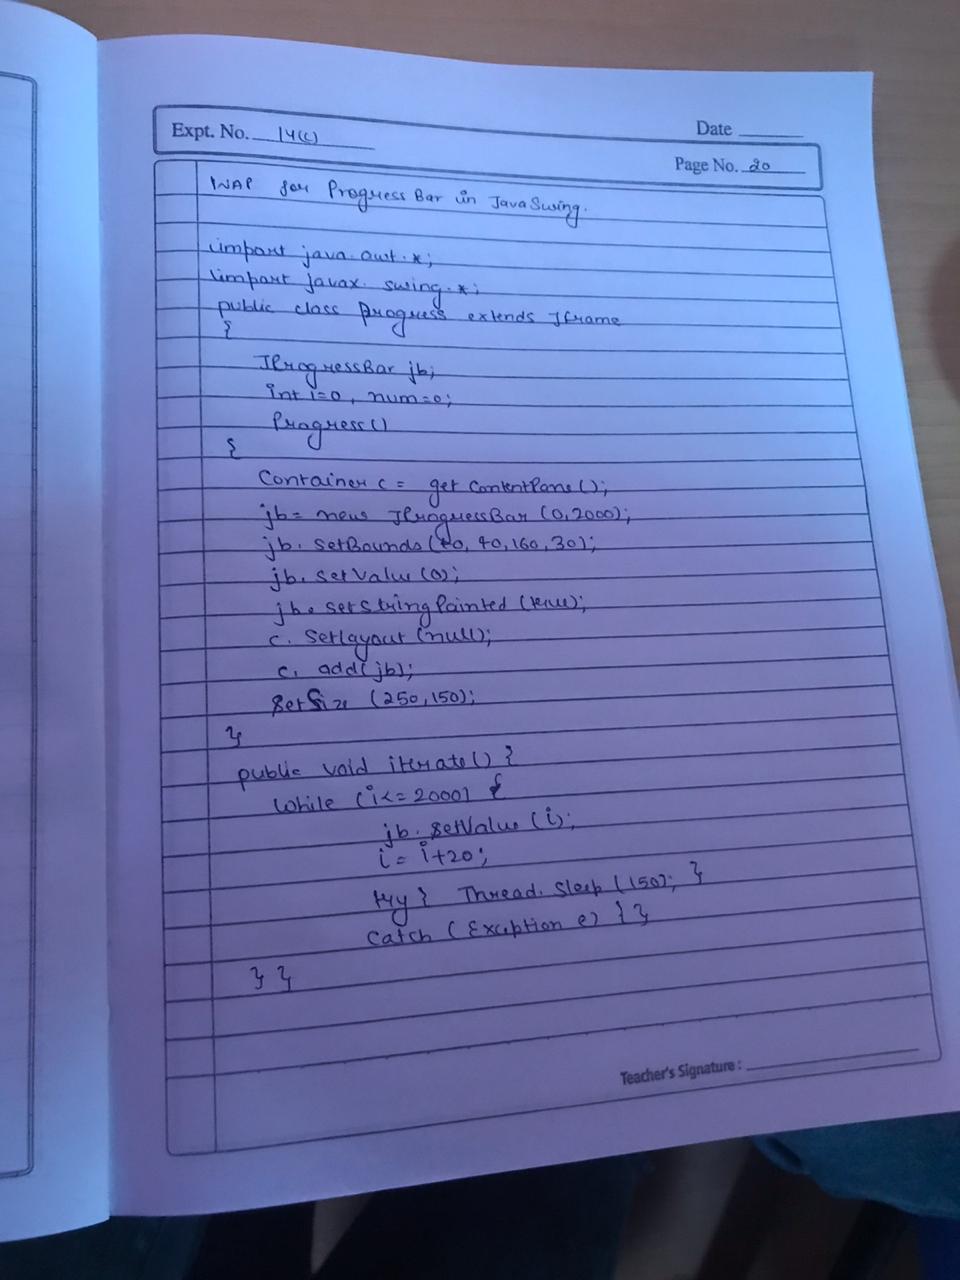 Expt. No. 14(c)
Date
Page No. 20
WAP for Progress Bar in Java Swing.
import java.awt.*;
import javax.swing.*;
public class Progress extends JFrame
{
JProgressBar jb;
int i=0, num=0;
Progress()
{
Container c = getContentPane();
jb = new JProgressBar (0,2000);
jb.setBounds(40, 40, 160, 30);
jb.setValue(0);
jb.setStringPainted (true);
c.setLayout (null);
c.add(jb);
setSize (250,150);
}
public void iterate() {
while (i<=2000) {
jb.setValue (i);
i = i+20;
try { Thread.sleep (150); }
catch (Exception e) { }
} }
Teacher's Signature :